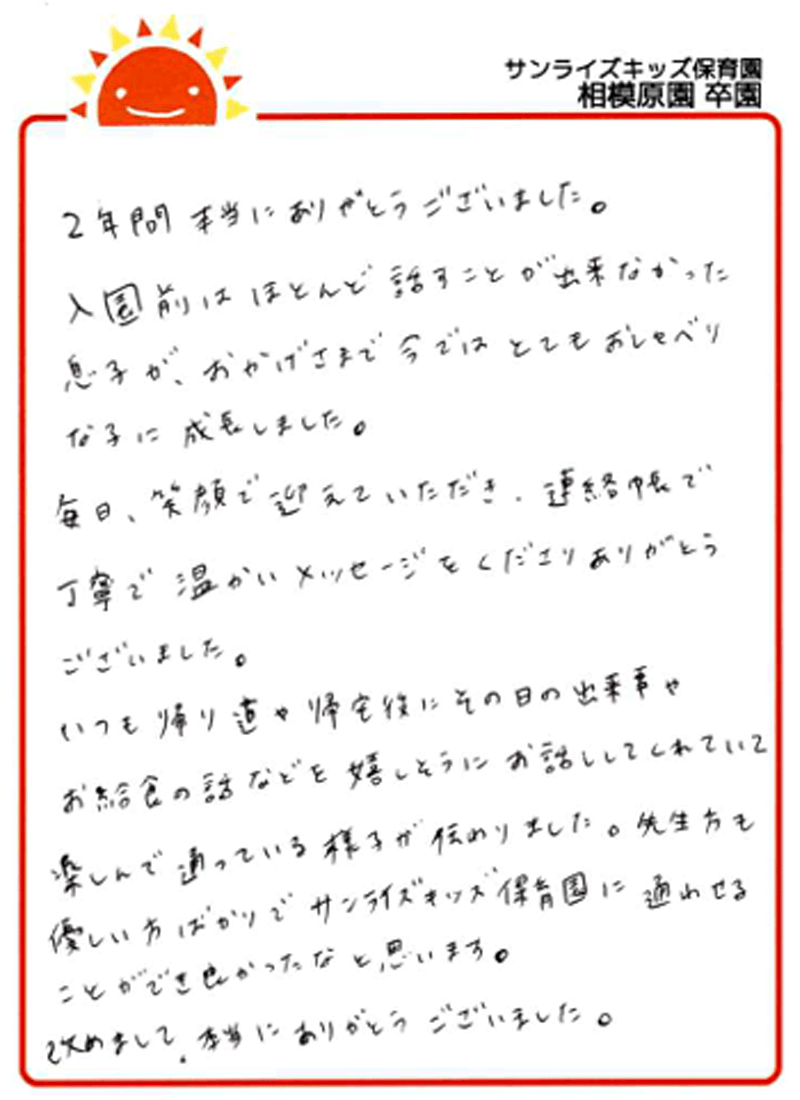 サンライズキッズ保育園
相模原園 卒園
2年間 本当にありがとうございました。
入園前は ほとんど 話すことが出来なかった
息子が、おかげさまで 今では とても おしゃべり
な子に 成長しました。
毎日、笑顔で迎えていただき、連絡帳で
丁寧で 温かいメッセージを くださり ありがとう
ございました。
いつも 帰り道や 帰宅後に その日の出来事や
お給食の話などを 嬉しそうに お話ししてくれていて
楽しんで 通っている 様子が 伝わりました。先生方も
優しい方ばかりで サンライズキッズ保育園に 通わせる
ことができ良かったなと思います。
改めまして、本当に ありがとう ございました。